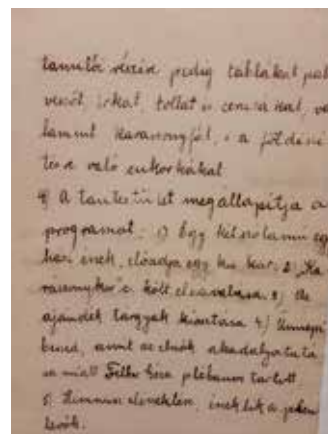 tanulók részére pedig táblákat pal
vesszőt, irkát, tollat s ceruzákat, va
lamint karácsonyfát, s a földíszí
tésre való cukorkákat
4) A tantestület megállapítja a
programot: 1) Egy két szólamú egy
házi ének, előadja egy kis kar. 2) "Ka
rácsonykor" c. költ. elszavalása. 3) Az
ajándék tárgyak kiosztása 4.) Ünnepi
beszéd, amit az elnök akadályozta
sa miatt Géza plébános tartott
5) Himnusz éneklése, énekelték a jelen
levők.